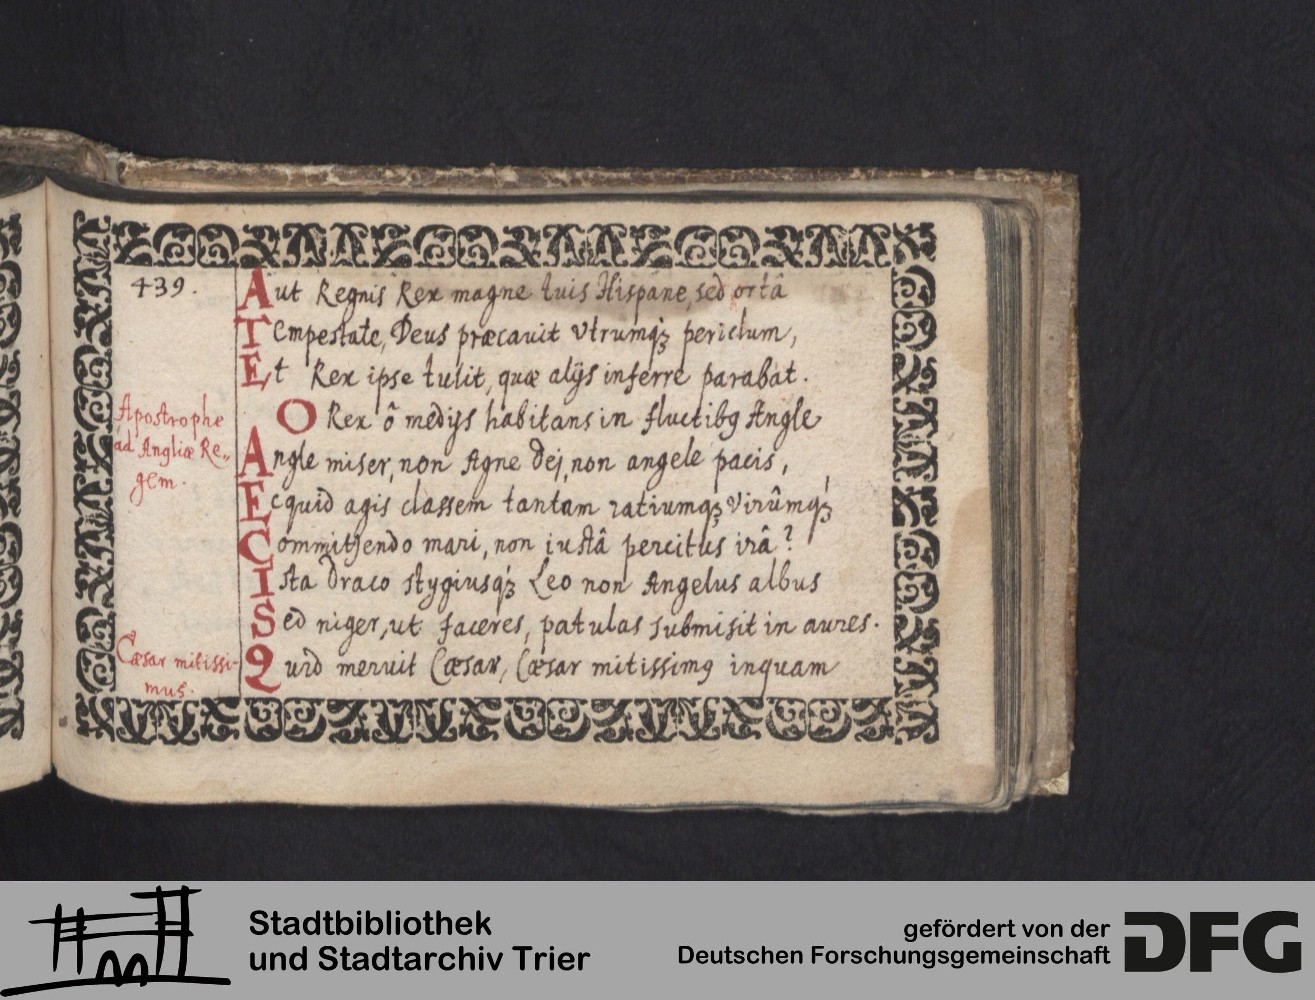 439.
Aut Regnis Rex magne tuis Hispane, sed ortâ
Tempestate, Deus præcauit vtrumqꝫ periclum,
Et Rex ipse tulit, quæ alijs inferre parabat.
Apostrophe
ad Angliæ Re„
gem.
O Rex ô medijs habitans in fluctibꝯ Angle
Angle miser, non Agne dej, non angele pacis,
Ecquid agis classem tantam ratiumqꝫ virûmqꝫ
Committendo mari, non iustâ percitus irâ?
Ista Draco stygiusqꝫ Leo non Angelus albus
Sed niger, ut faceres, patulas submisit in aures.
Cæsar mitissi-
mus.
Quid meruit Cæsar, Cæsar mitissimꝯ inquam
Stadtbibliothek
und Stadtarchiv Trier
gefördert von der
Deutschen Forschungsgemeinschaft
DFG